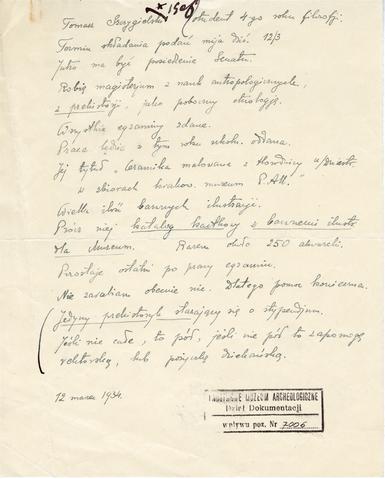 * 1908
Tomasz Burzyński, student 4-go roku filozofji.
Termin składania podań mija dziś. 12/3
Jutro ma być posiedzenie Senatu.
Robię magisterjum z nauk antropologicznych,
z prehistorji, jako poboczny etnologję.
Wszystkie egzaminy zdane.
Praca będzie w tym roku szkoln. oddana.
Jej tytuł „Ceramika malowana z Horodnicy n/Dniestr.
w zbiorach krakow. muzeum P.A.U."
Wielka ilość barwnych ilustracji.
Prócz niej katalog kartkowy z barwnemi ilustr.
dla Muzeum. Razem około 250 akwareli.
Pozostaje ostatni po pracy egzamin.
Nie zarabiam obecnie nic. Dlatego pomoc konieczna.
Jedyny prehistoryk starający się o stypendjum.
Jeśli nie całe, to pół, jeśli nie pół to zapomogę
rektorską, lub pożyczkę dziekańską.
12 marca 1934.
PAŃSTWOWE MUZEUM ARCHEOLOGICZNE
Dział Dokumentacji
wpływu poz. Nr 7006